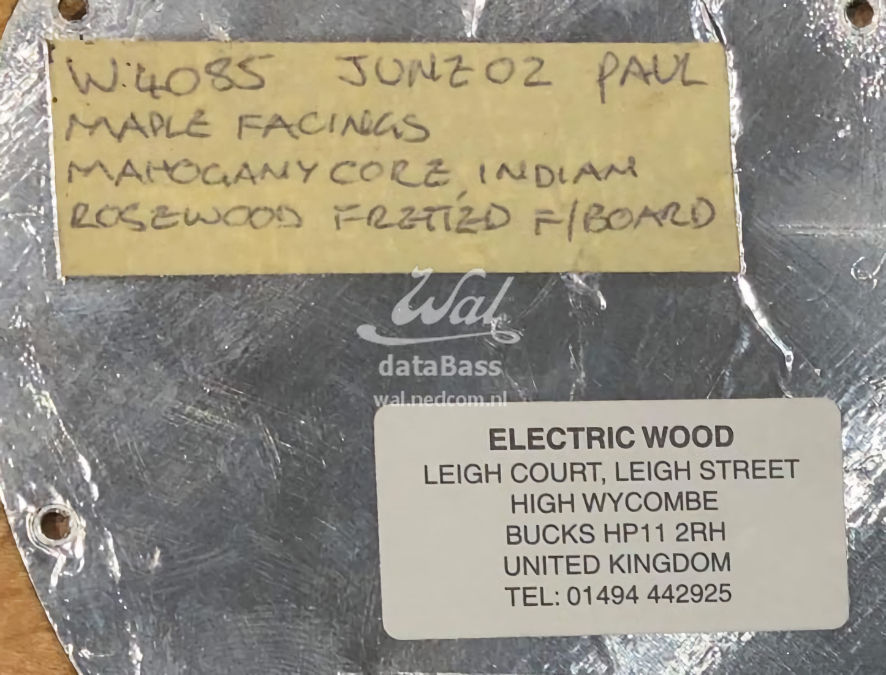 W:4085 JUNE 02 PAUL
MAPLE FACINGS
MAHOGANY CORE, INDIAN
ROSEWOOD FRETTED F/BOARD
Wal
dataBass
wal.nedcom.nl
ELECTRIC WOOD
LEIGH COURT, LEIGH STREET
HIGH WYCOMBE
BUCKS HP11 2RH
UNITED KINGDOM
TEL: 01494 442925